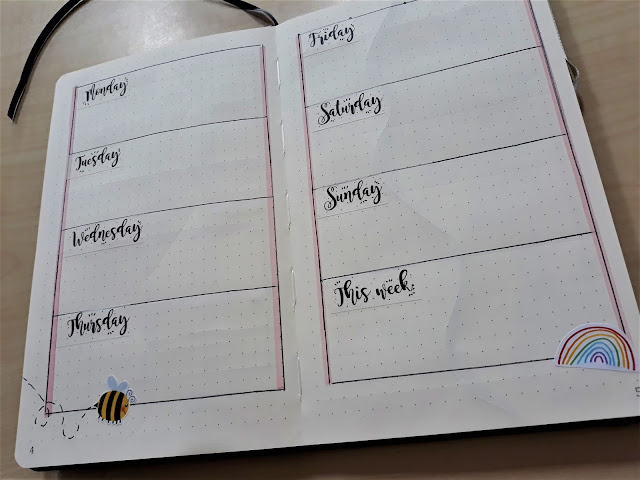 Monday
Tuesday
Wednesday
Thursday
4
Friday
Saturday
Sunday
This week
5